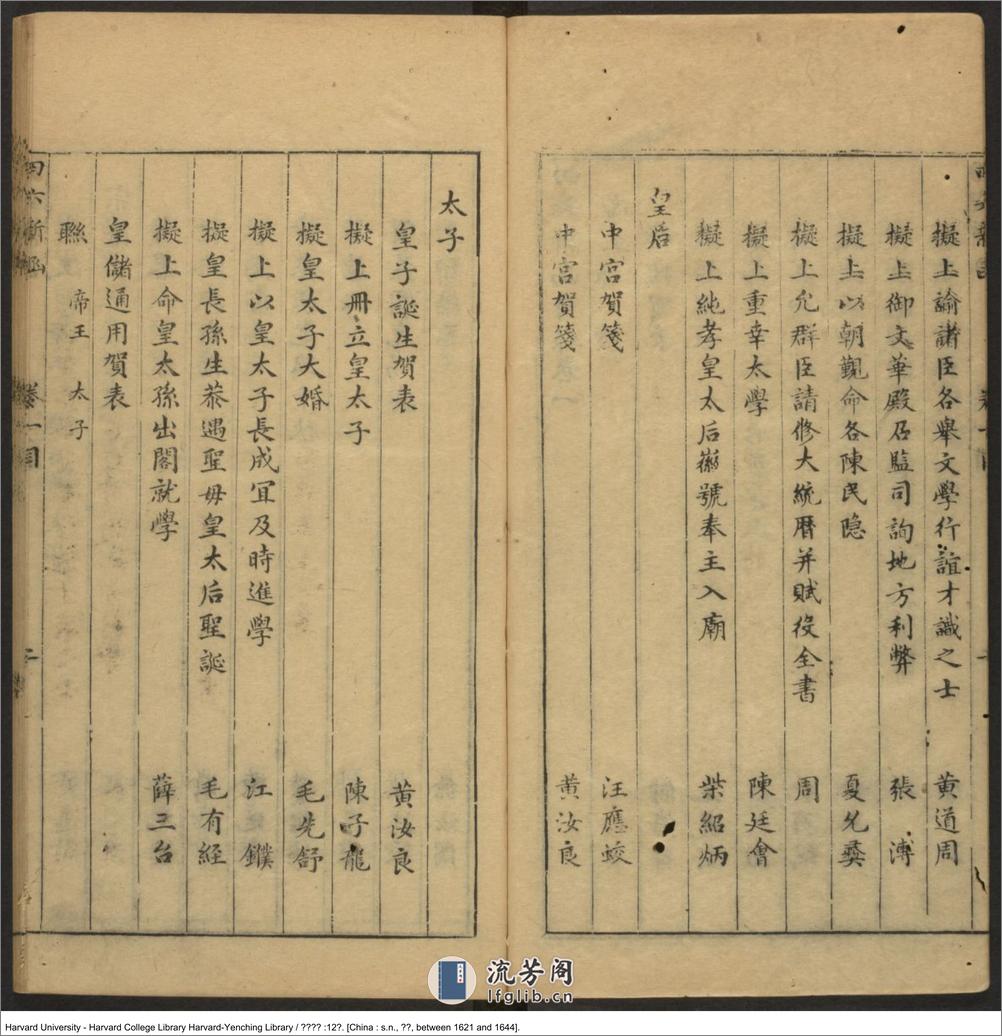 擬上諭諸臣各舉文學行誼才識之士 黄道周
擬上御文華殿召監司詢地方利弊 張溥
擬上以朝覲命各陳民隐 夏允彝
擬上允群臣請修大統曆并賦役全書 周
擬上重幸太學 陳廷會
擬上純孝皇太后徽號奉主入廟 柴紹炳
皇后
中宫賀箋 汪應蛟
中宫賀箋 黄汝良
太子
皇子誕生賀表 黄汝良
擬上冊立皇太子 陳子龍
擬皇太子大婚 毛先舒
擬上以皇太子長成冝及時進學 江鏷
擬皇長孫生恭遇聖母皇太后聖誕 毛有經
擬上命皇太孫出閣就學 薛三台
皇儲通用賀表
聮 帝王 太子
四六新函 卷一目 二
流芳阁
lfglib.cn
Harvard University - Harvard College Library Harvard-Yenching Library / ???? :12?. [China : s.n., ??, between 1621 and 1644].